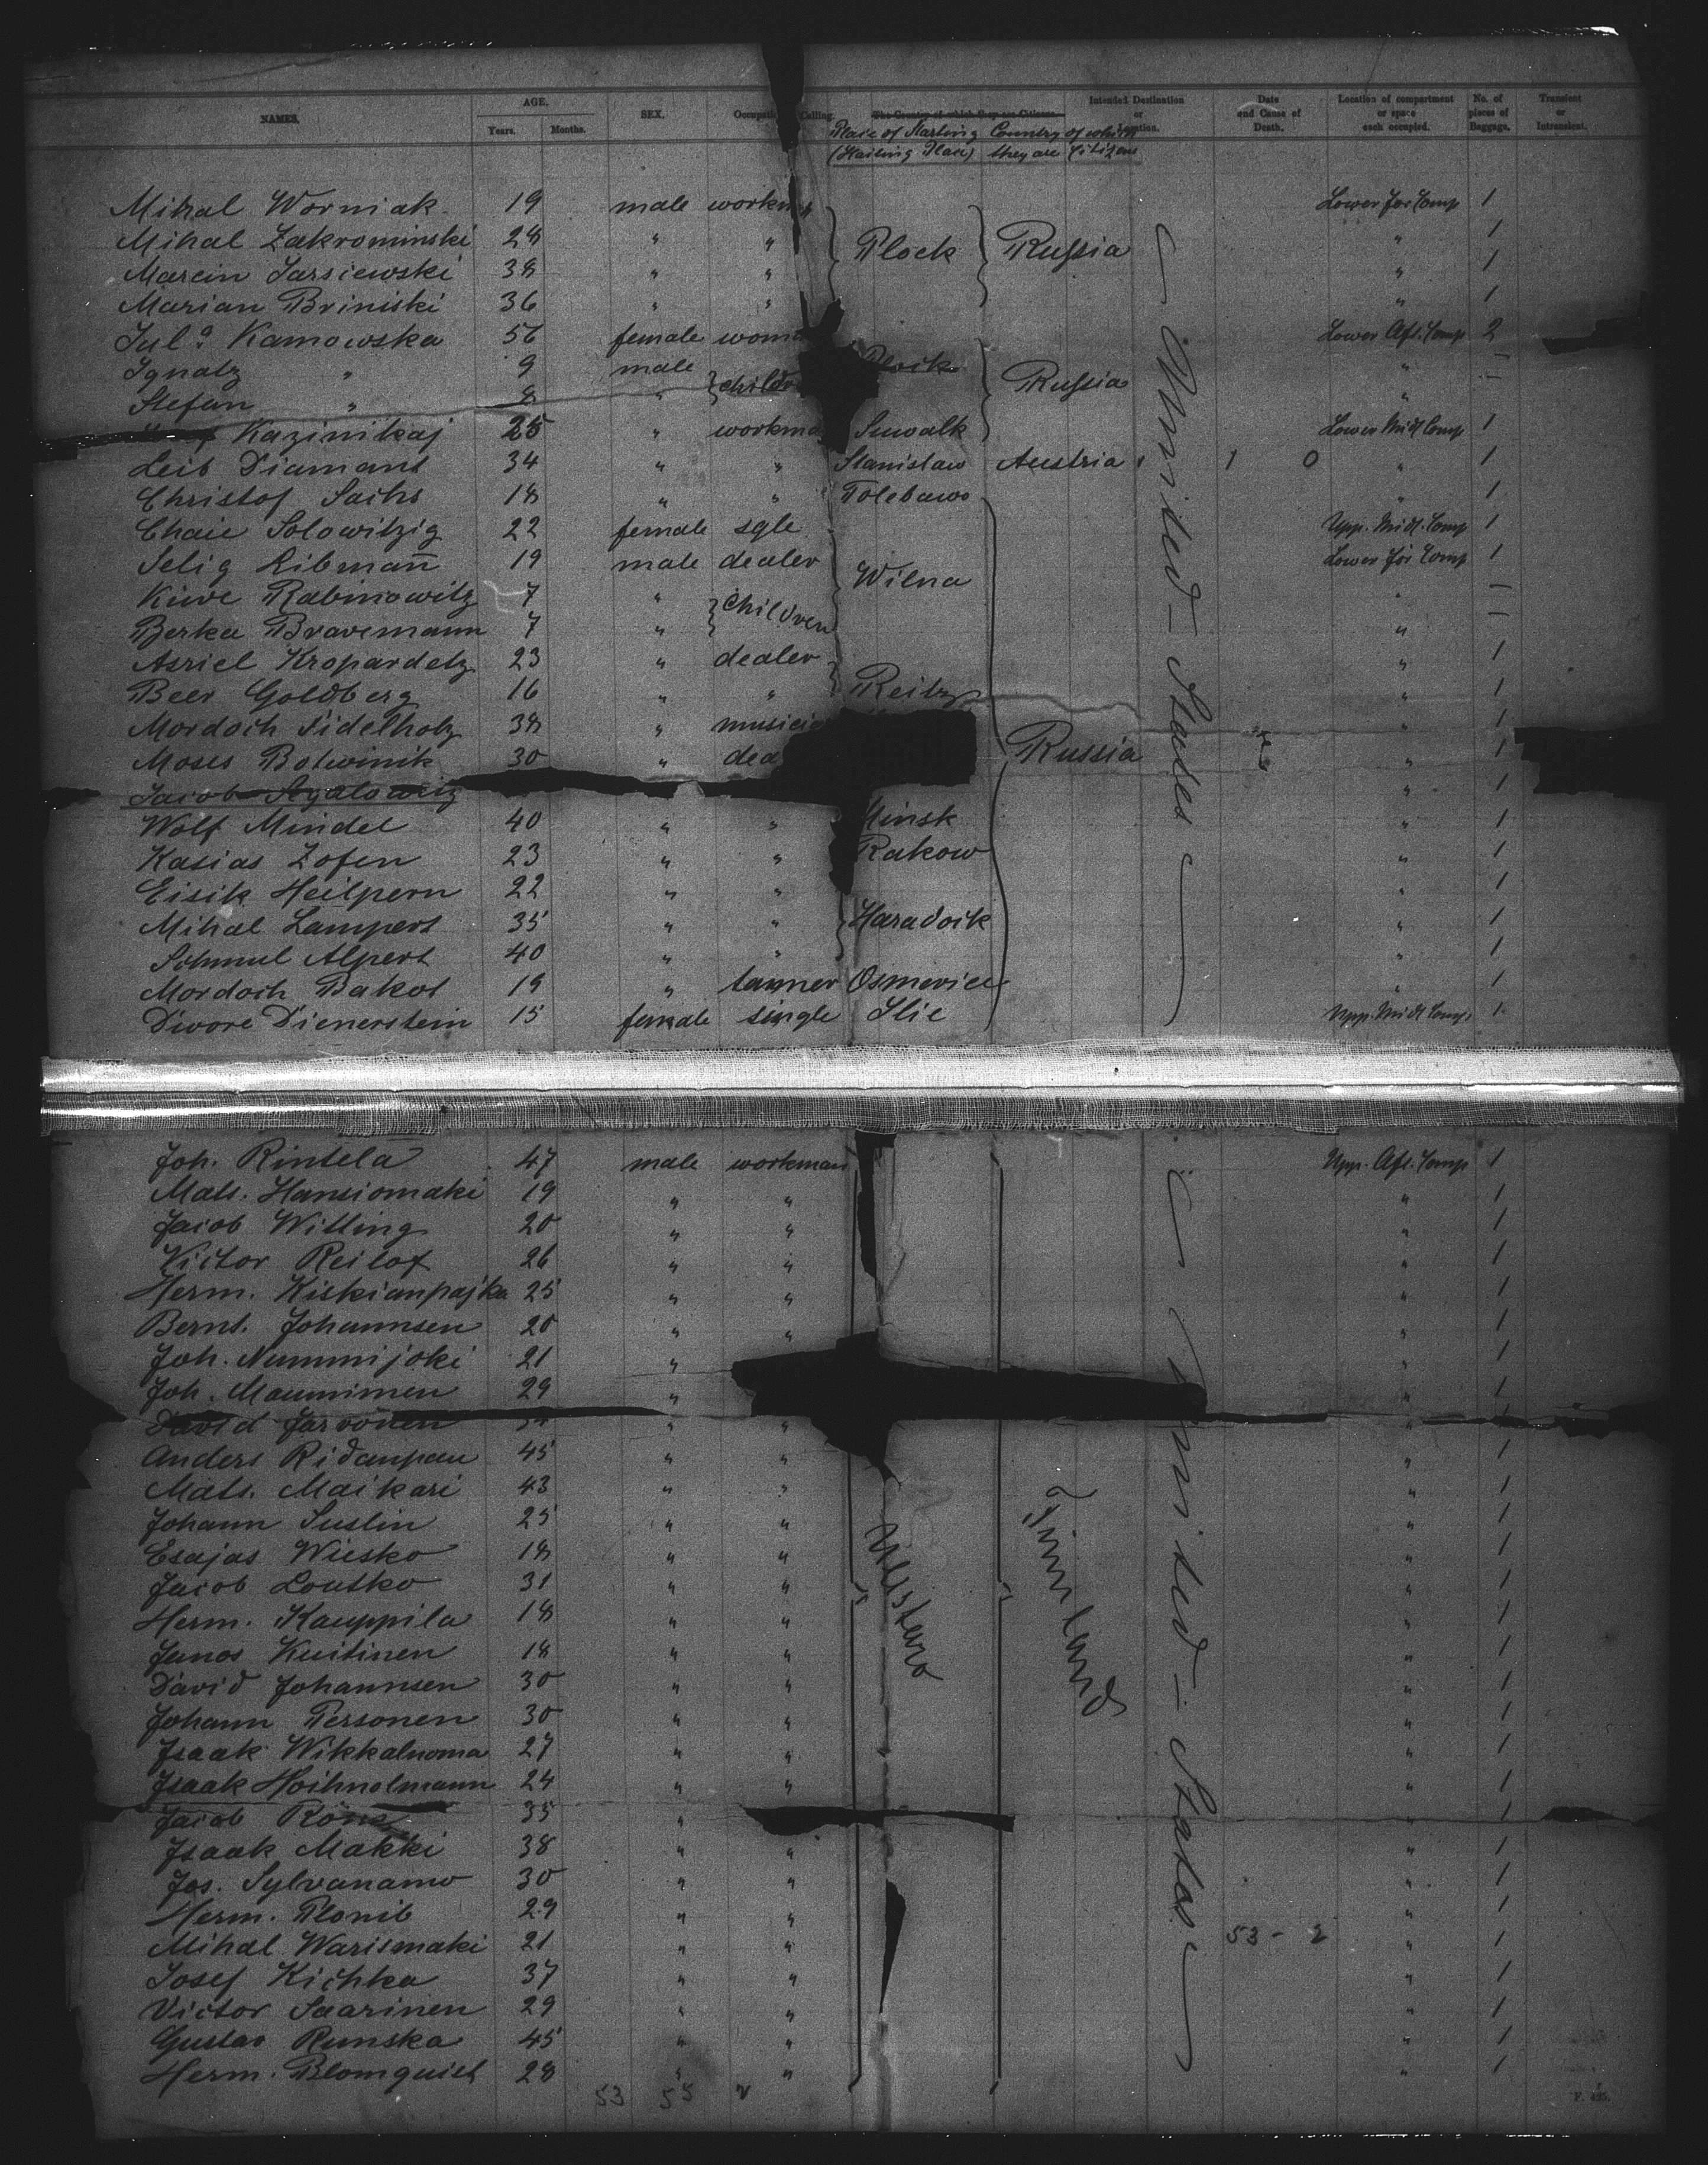 NAMES. AGE. SEX. Occupati Calling. The Country of which they are Citizens. Intended Destination or Location. Date and Cause of Death. Location of compartment or space each occupied. No. of pieces of Baggage. Transient or Intransient.
Years. Months. Place of Starting (Hailing Place) Country of which they are Citizens
Mihal Worniak 19 male workman Lower for Comp 1
Mihal Zakrominski 28 " " Plock Russia " 1
Marcin Jarsiewski 38 " " " 1
Marian Briniski 36 " " " 1
Jul. Kamowska 56 female woma Lower Aft. Comp 2
Ignatz " 9 male " —
Stefan " 8 " childr Russia " —
Kazinikaj 25 " workma Suwalk Lower Midl Comp 1
Leib Diamant 34 " " Stanislaw Austria 1 0 " 1
Christof Sachs 18 " " Tolebawo " 1
Chaie Solowitzig 22 female sgle Upp. Midl. Comp 1
Selig Libmann 19 male dealer Wilna Lower for Comp 1
Kiwe Rabinowitz 7 " children " —
Berka Bravemann 7 " " —
Asriel Kropardetz 23 " dealer " 1
Beer Goldberg 16 " " Reitz " 1
Mordoch Sidelholz 38 " musicia " 1
Moses Botwinik 30 " dea Russia " 1
Jacob Segalowitz " 1
Wolf Mindel 40 " " Minsk " 1
Kasias Zofen 23 " " Rakow " 1
Eisik Heilpern 22 " " " 1
Mihal Lampert 35 " " Haradock " 1
Schmul Alpert 40 " " " 1
Mordoch Bakot 19 " tanner Osmerice " 1
Dwore Dienerstein 15 female single Ilie Upp. Midl Comp. 1
United-States
Joh. Rintela 47 male workman Upp. Aft. Comp 1
Mats. Hansiomaki 19 " " " 1
Jacob Willing 20 " " " 1
Victor Reilof 26 " " " 1
Herm. Kiskianpajka 25 " " " 1
Bernt. Johannsen 20 " " " 1
Joh. Nummijoki 21 " " 1
Joh. Maunimen 29 " " 1
David Jarvonen " " "
Anders Ridanpau 45 " " " 1
Mats. Maikari 43 " " " 1
Johann Suslin 25 " " " 1
Esajas Wiesko 18 " " " 1
Jacob Loutko 31 " " " 1
Herm. Kauppila 18 " " " 1
Janos Kuitinen 18 " " " 1
David Johannsen 30 " " " 1
Johann Personen 30 " " " 1
Isaak Wikkalnoma 27 " " " 1
Isaak Hoihnolmann 24 " " " 1
Jacob Röns 35 " " 1
Isaak Makki 38 " " " 1
Jos. Sylvanamo 30 " " " 1
Herm. Plonib 29 " " " 1
Mihal Warismaki 21 " " 53 - 2 " 1
Josef Kichka 37 " " " 1
Victor Saarinen 29 " " " 1
Gustav Runska 45 " " " 1
Herm. Blomquist 28 " " " 1
Finnland
United-States
53 55